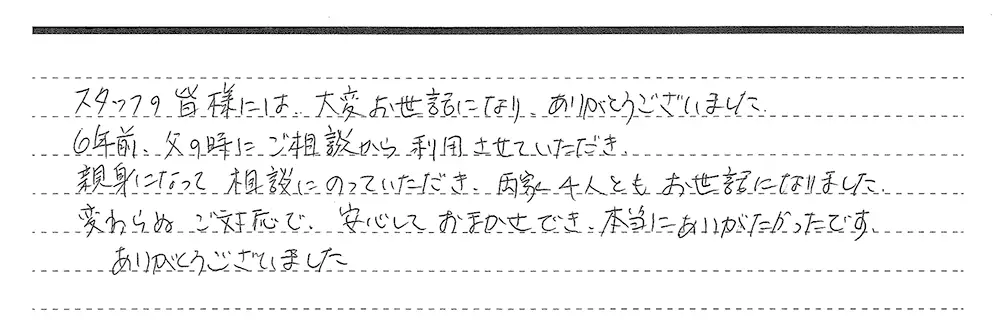 スタッフの皆様には、大変お世話になり、ありがとうございました。
6年前、父の時にご相談から利用させていただき、
親身になって相談にのっていただき、両家4人ともお世話になりました。
変わらぬご対応で、安心しておまかせでき、本当にありがたかったです。
ありがとうございました